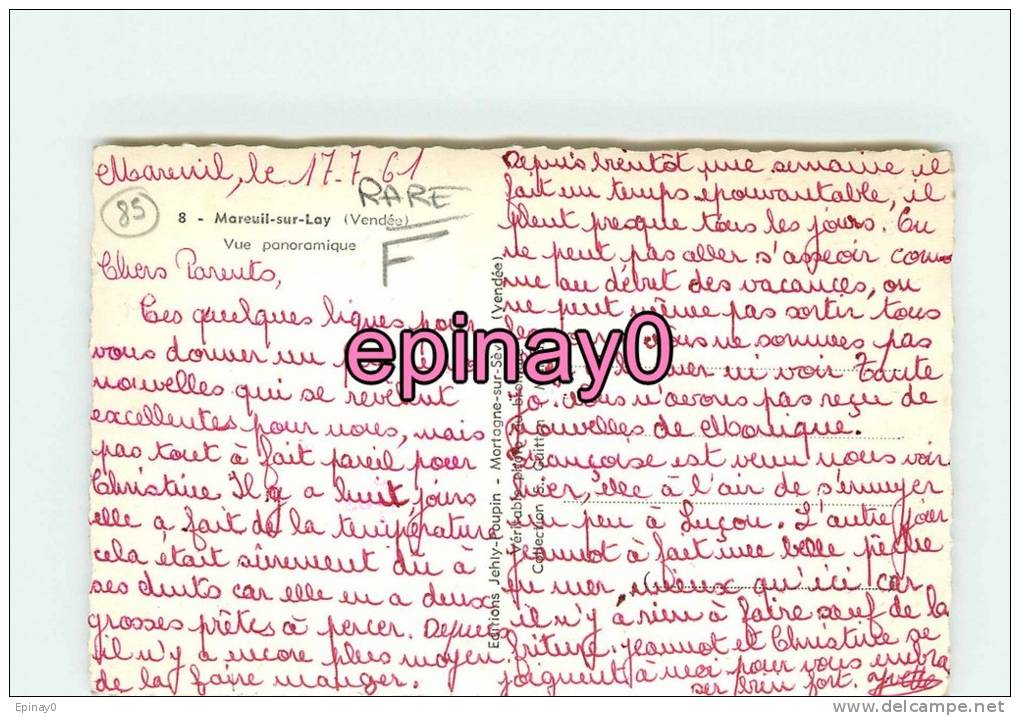 Mareuil, le 17-7-61
RARE
85
8 - Mareuil-sur-Lay (Vendée)
Vue panoramique
F
Chers Parents,
Ces quelques lignes pour
vous donner un
nouvelles qui se révèlent
excellentes pour nous, mais
pas tout à fait pareil pour
Christine Il y a huit jours
elle a fait de la température
cela était sûrement du à
ses dents car elle en a deux
grosses prêtes à percer. Depuis
il n'y a encore plus moyen
de la faire manger.
Editions Jehly-Poupin - Mortagne-sur-Sèv (Vendée)
Véritable
Collection S. Guitton
Depuis bientôt une semaine il
fait un temps épouvantable, il
pleut presque tous les jours. On
ne peut pas aller s'asseoir comme
au début des vacances, on
ne peut même pas sortir tous
les nous ne sommes pas
ni voir Tante
Jo. Nous n'avons pas reçu de
nouvelles de Monique.
Françoise est venu nous voir
hier, elle à l'air de s'ennuyer
un peu à Luçon. L'autre jour
Jeannot à fait une belle pêche
en mer mieux qu'ici car
il n'y à rien à faire sauf de la
friture. Jeannot et Christine se
joignent à moi pour vous embra
ser bien fort. Yvette
epinay0
Epinay0
www.delcampe.net